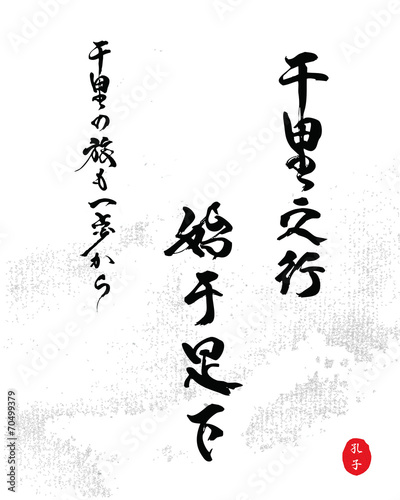 千里之行
始于足下
千里の旅も一歩から
孔子
Adobe Stock
#70499379